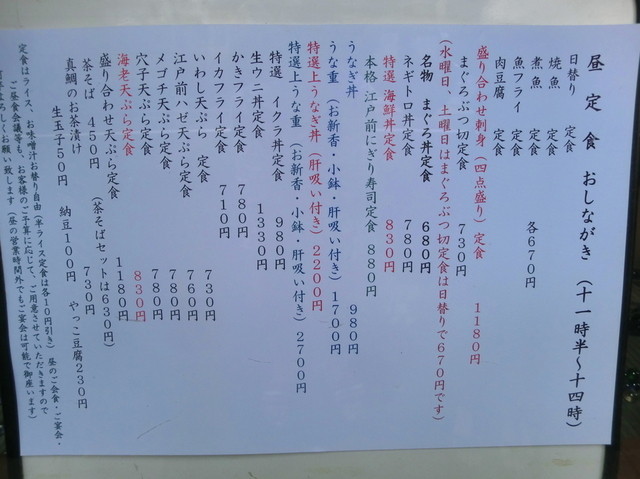 昼定食 おしながき (十一時半〜十四時)
日替り 定食
焼魚 定食
煮魚 定食
魚フライ 定食
肉豆腐 定食
各670円
盛り合わせ刺身 (四点盛り) 定食 1180円
まぐろぶつ切定食 730円
(水曜日、土曜日はまぐろぶつ切定食は日替りで670円です)
名物 まぐろ丼定食 680円
ネギトロ丼定食 780円
特選 海鮮丼定食 830円
本格 江戸前にぎり寿司定食 880円
うなぎ丼 980円
うな重 (お新香・小鉢・肝吸い付き) 1700円
特選上うなぎ丼 (肝吸い付き) 2200円
特選上うな重 (お新香・小鉢・肝吸い付き) 2700円
特選 イクラ丼定食 980円
生ウニ丼定食 1330円
かきフライ定食 780円
イカフライ定食 710円
いわし天ぷら 定食 730円
江戸前ハゼ天ぷら定食 760円
メゴチ天ぷら定食 780円
穴子天ぷら定食 780円
海老天ぷら定食 830円
盛り合わせ天ぷら定食 1180円
茶そば 450円 (茶そばセットは630円)
真鯛のお茶漬け 730円
生玉子50円 納豆100円 やっこ豆腐230円
定食はライス、お味噌汁お替り自由(半ライス定食は各10円引き) 昼のご会食・ご宴会・
ご昼食会議等も、お客様のご予算に応じて、ご用意させていただきますので
よろしくお願い致します (昼の営業時間外でもご宴会は可能で御座います)